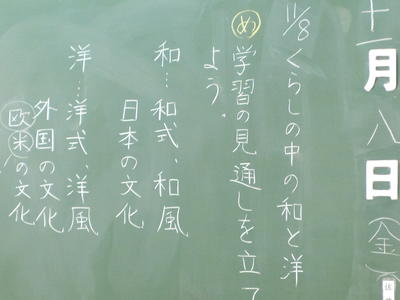 十一月八日(金)
11/8 くらしの中の和と洋
め 学習の見通しを立て
よう。
和…和式、和風
日本の文化
洋…洋式、洋風
外国の文化
欧米の文化